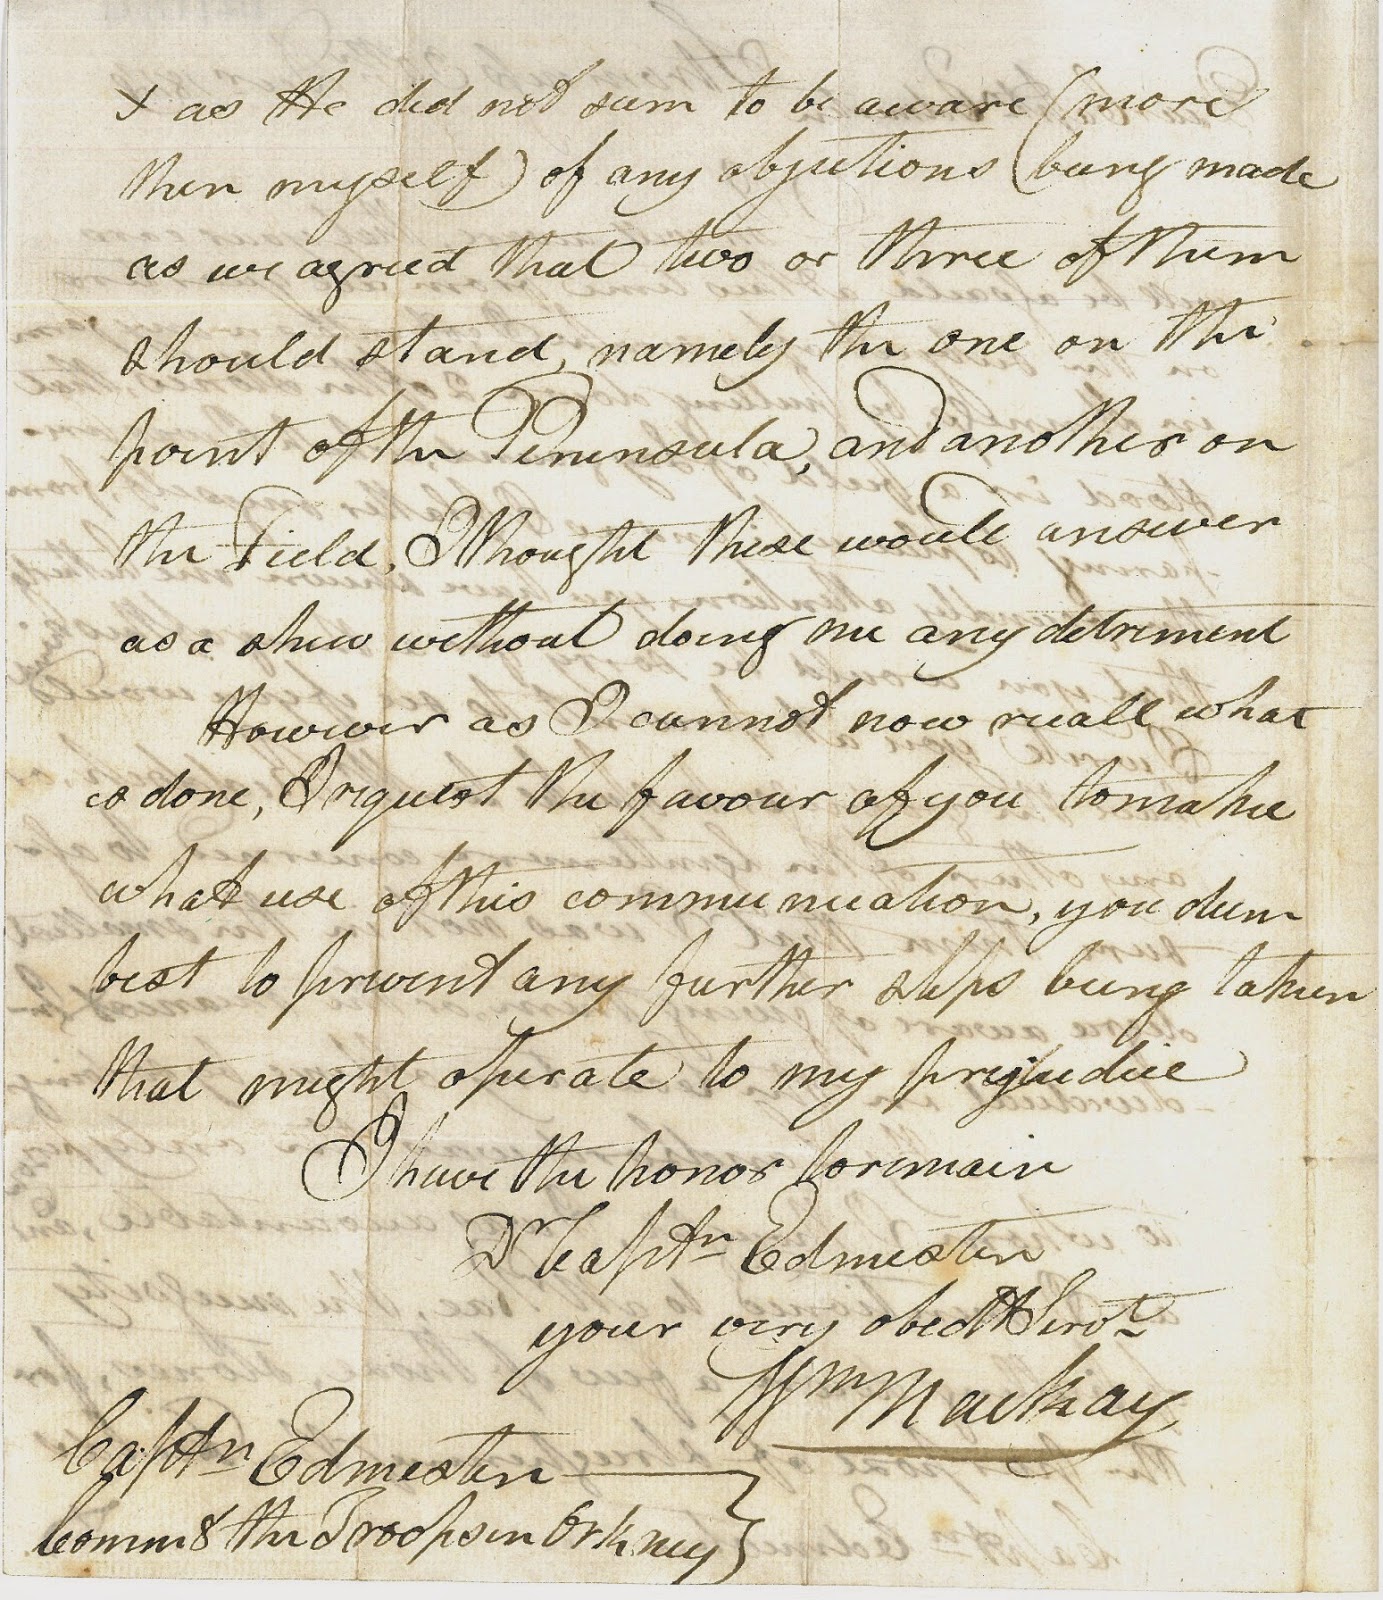 x as He did not seem to be aware (more
then myself) of any objections (being made
as we agreed that two or three of them
should stand, namely the one on the
point of the Peninsula, and another on
the Field, I thought these would answer
as a shew without doing me any detriment
However as I cannot now recall what
is done, I request the favour of you to make
what use of this communication, you deem
best to prevent any further steps being taken
that might operate to my prejudice
I have the honor to remain
Dr Captn Edmesten
your very obedt Servt
Wm Mackay
Captn Edmesten
Commg the Troops in Orkney